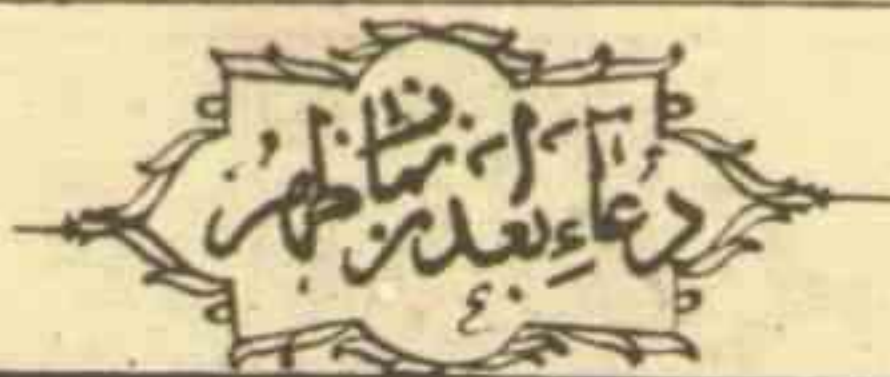 دُعَآءِ بَعْد اَزْ نَمَازِ ظُهْرْ